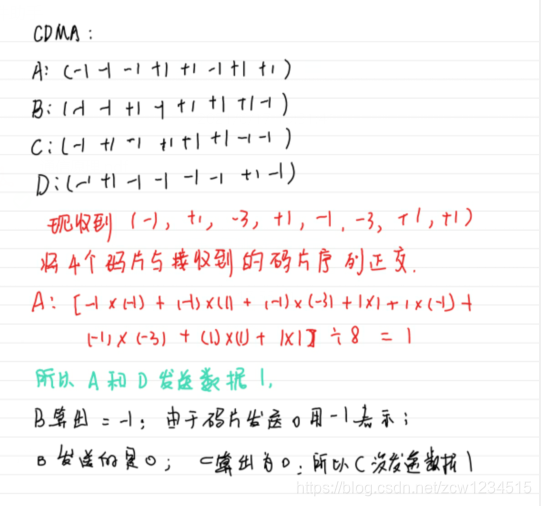 CDMA:
A: (-1 -1 -1 +1 +1 -1 +1 +1)
B: (-1 -1 +1 -1 +1 +1 +1 -1)
C: (-1 +1 -1 +1 +1 +1 -1 -1)
D: (-1 +1 -1 -1 -1 -1 +1 -1)
现收到 (-1, +1, -3, +1, -1, -3, +1, +1)
将4个码片与接收到的码片序列正交.
A: [-1×(-1) + (-1)×(1) + (-1)×(-3) + 1×1 + 1×(-1) +
(-1)×(-3) + (1)×(1) + 1×1] ÷ 8 = 1
所以 A 和 D 发送数据1,
B算出 = -1; 由于码片发送0用-1表示;
B 发送的是0; C算出为0; 所以C没发送数据1
https://blog.csdn.net/zcw1234515